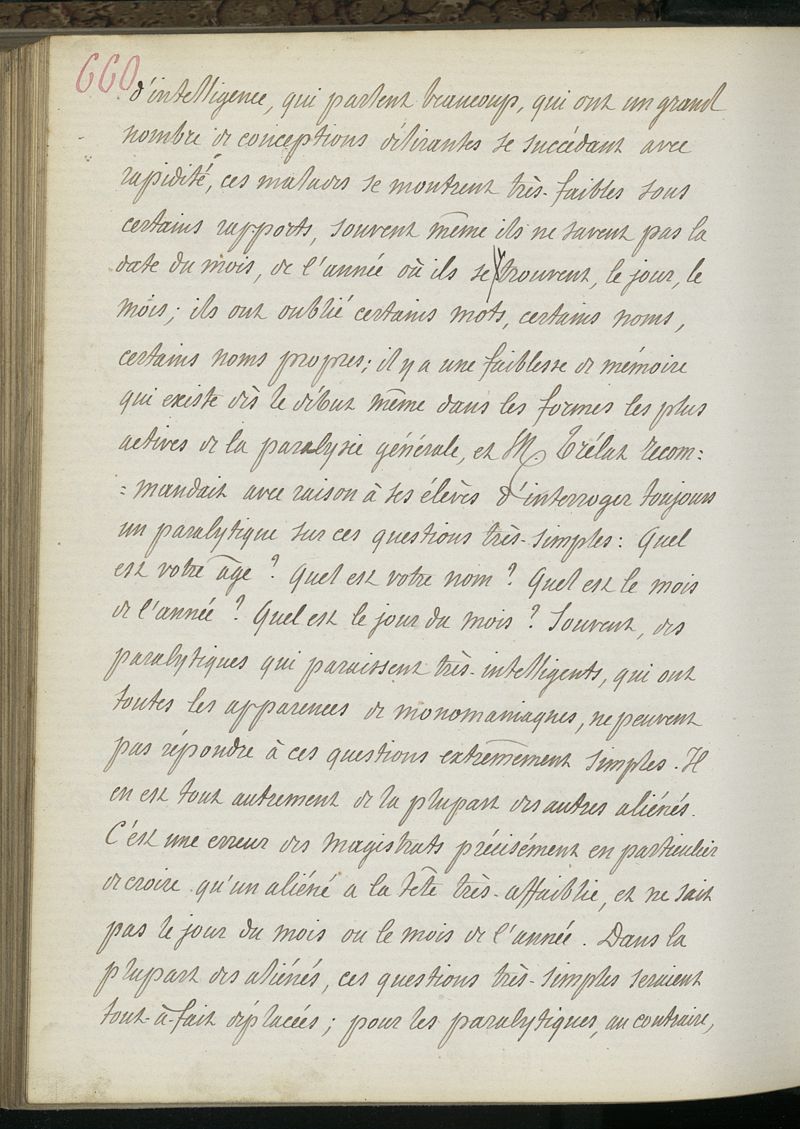 660
d'intelligence, qui parlent beaucoup, qui ont un grand
nombre de conceptions délirantes se succédant avec
rapidité, ces malades se montrent très-faibles sous
certains rapports, souvent même ils ne savent pas la
date du mois, de l'année où ils se trouvent, le jour, le
mois; ils ont oublié certains mots, certains noms,
certains noms propres; il y a une faiblesse de mémoire
qui existe dès le début même dans les formes les plus
actives de la paralysie générale, et M. Trélat recom=
=mandait avec raison à ses élèves d'interroger toujours
un paralytique sur ces questions très-simples: Quel
est votre âge? Quel est votre nom? Quel est le mois
de l'année? Quel est le jour du mois? Souvent, des
paralytiques qui paraissent très-intelligents, qui ont
toutes les apparences de monomaniaques, ne peuvent
pas répondre à ces questions extrêmement simples. Il
en est tout autrement de la plupart des autres aliénés.
C'est une erreur des magistrats précisément en particulier
de croire qu'un aliéné a la tête très-affaiblie, et ne sait
pas le jour du mois ou le mois de l'année. Dans la
plupart des aliénés, ces questions très-simples seraient
tout-à-fait déplacées; pour les paralytiques, au contraire,